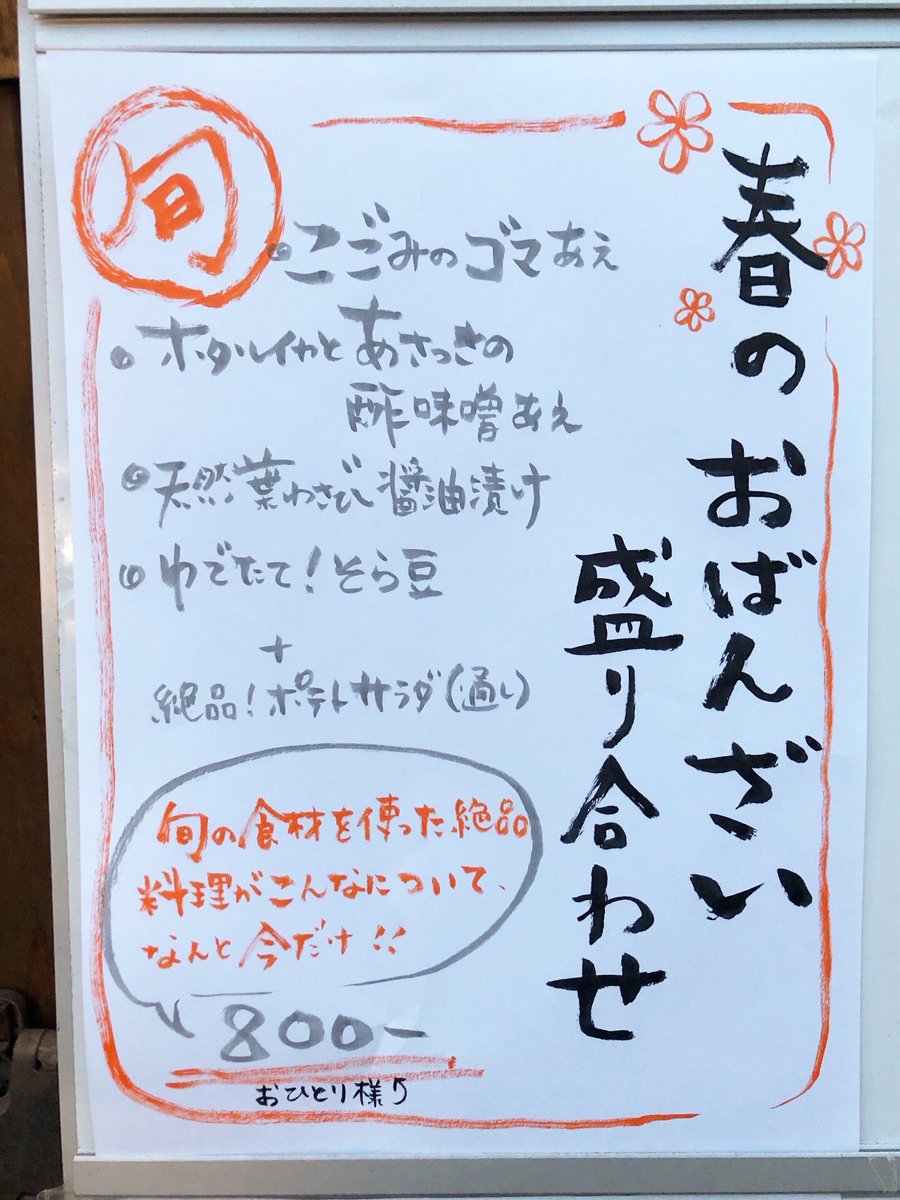 春のおばんざい
盛り合わせ
旬
・こごみのゴマあえ
・ホタルイカとあさつきの
酢味噌あえ
・天然葉わさび醤油漬け
・ゆでたて!そら豆
+
絶品!ポテトサラダ(通し)
旬の食材を使った絶品
料理がこんなについて、
なんと今だけ!!
800-
おひとり様